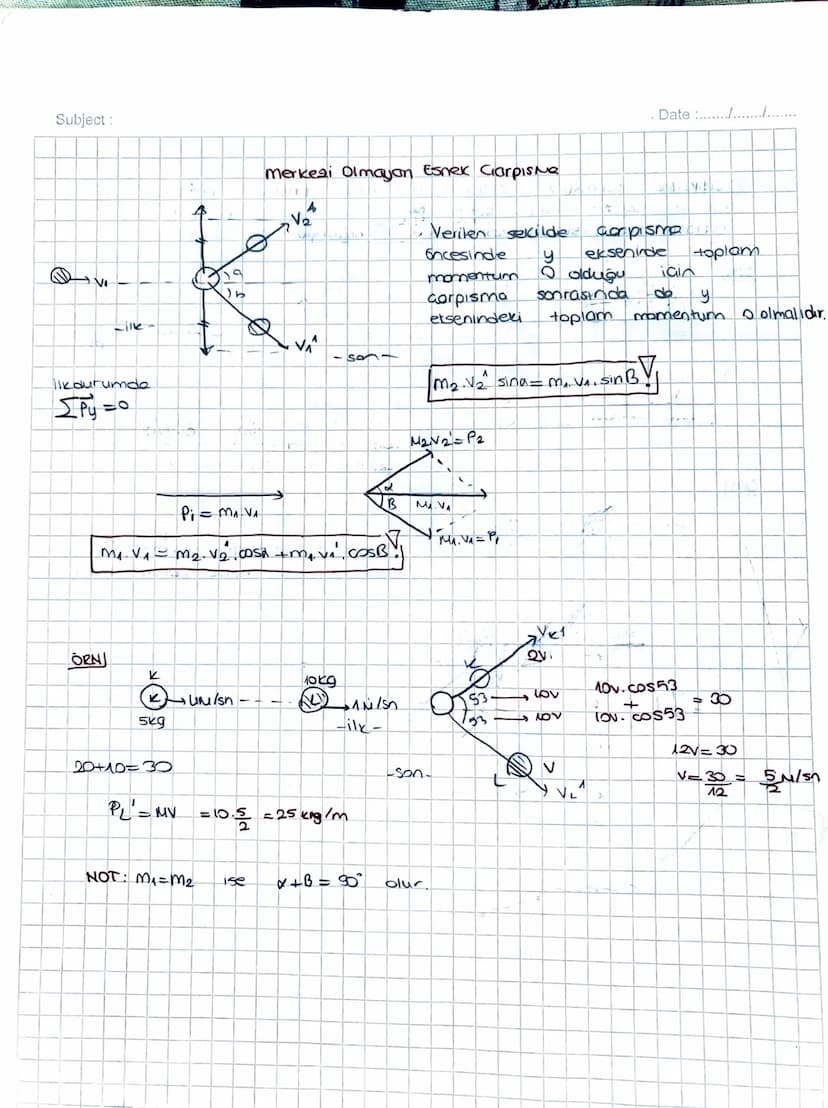 Subject :
Date :......./......./.......
Merkezi Olmayan Esnek Çarpışma
V2'
Verilen şekilde çarpışma
öncesinde y ekseninde toplam
momentum 0 olduğu için
çarpışma sonrasında da y
etsenindeki toplam momentum 0 olmalıdır.
V1
a
b
-ilk-
V1'
-son-
m2.V2' sina = m1.V1.sinB !
ilk durumda
ΣPy = 0
M2V2' = P2
α
B
M1.V1
Pi = m1.V1
M1.V1 = P1
m1.V1 = m2.V2'.cosα + m1.V1'.cosB !
ÖRN
K
K
5kg
4M/sn
10kg
L
1M/sn
-ilk-
K
VK1
2V.
53
10V
53
10V
10V.cos53
+
10V.cos53
= 30
12V = 30
V = 30/12 = 5/2 M/sn
20+10=30
-son-
L
V
VL'
PL' = MV = 10.5/2 = 25 kg/m
NOT: m1=m2 ise α+B = 90° olur.